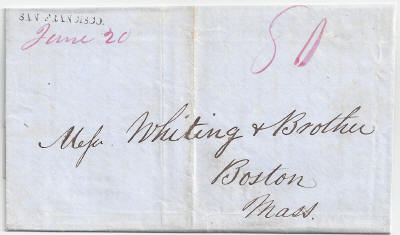 SAN FRANCISCO.
June 20
50
Messr Whiting & Brother
Boston
Mass.